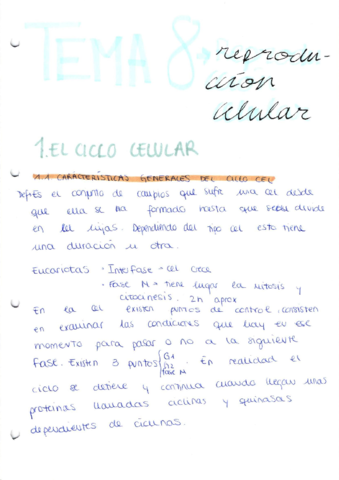 TEMA 8 → reprodu-
cción
celular
1. EL CICLO CELULAR
1.1 CARACTERÍSTICAS GENERALES DEL CICLO CEL
Def→ Es el conjunto de cambios que sufre una cel desde
que ella se ha formado hasta que se divide
en cel hijas. Dependiendo del tipo cel esto tiene
una duración u otra.
Eucariotas · Interfase → cel crece
· Fase M → tiene lugar la mitosis y
citocinesis. 2h aprox
En la cel existen puntos de control. consisten
en examinar las condiciones que hay en ese
momento para pasar o no a la siguiente
fase. Existen 3 puntos { G1
G2
fase M . En realidad el
ciclo se detiene y continua cuando llegan unas
proteinas llamadas ciclinas y quinasas
dependientes de ciclinas.